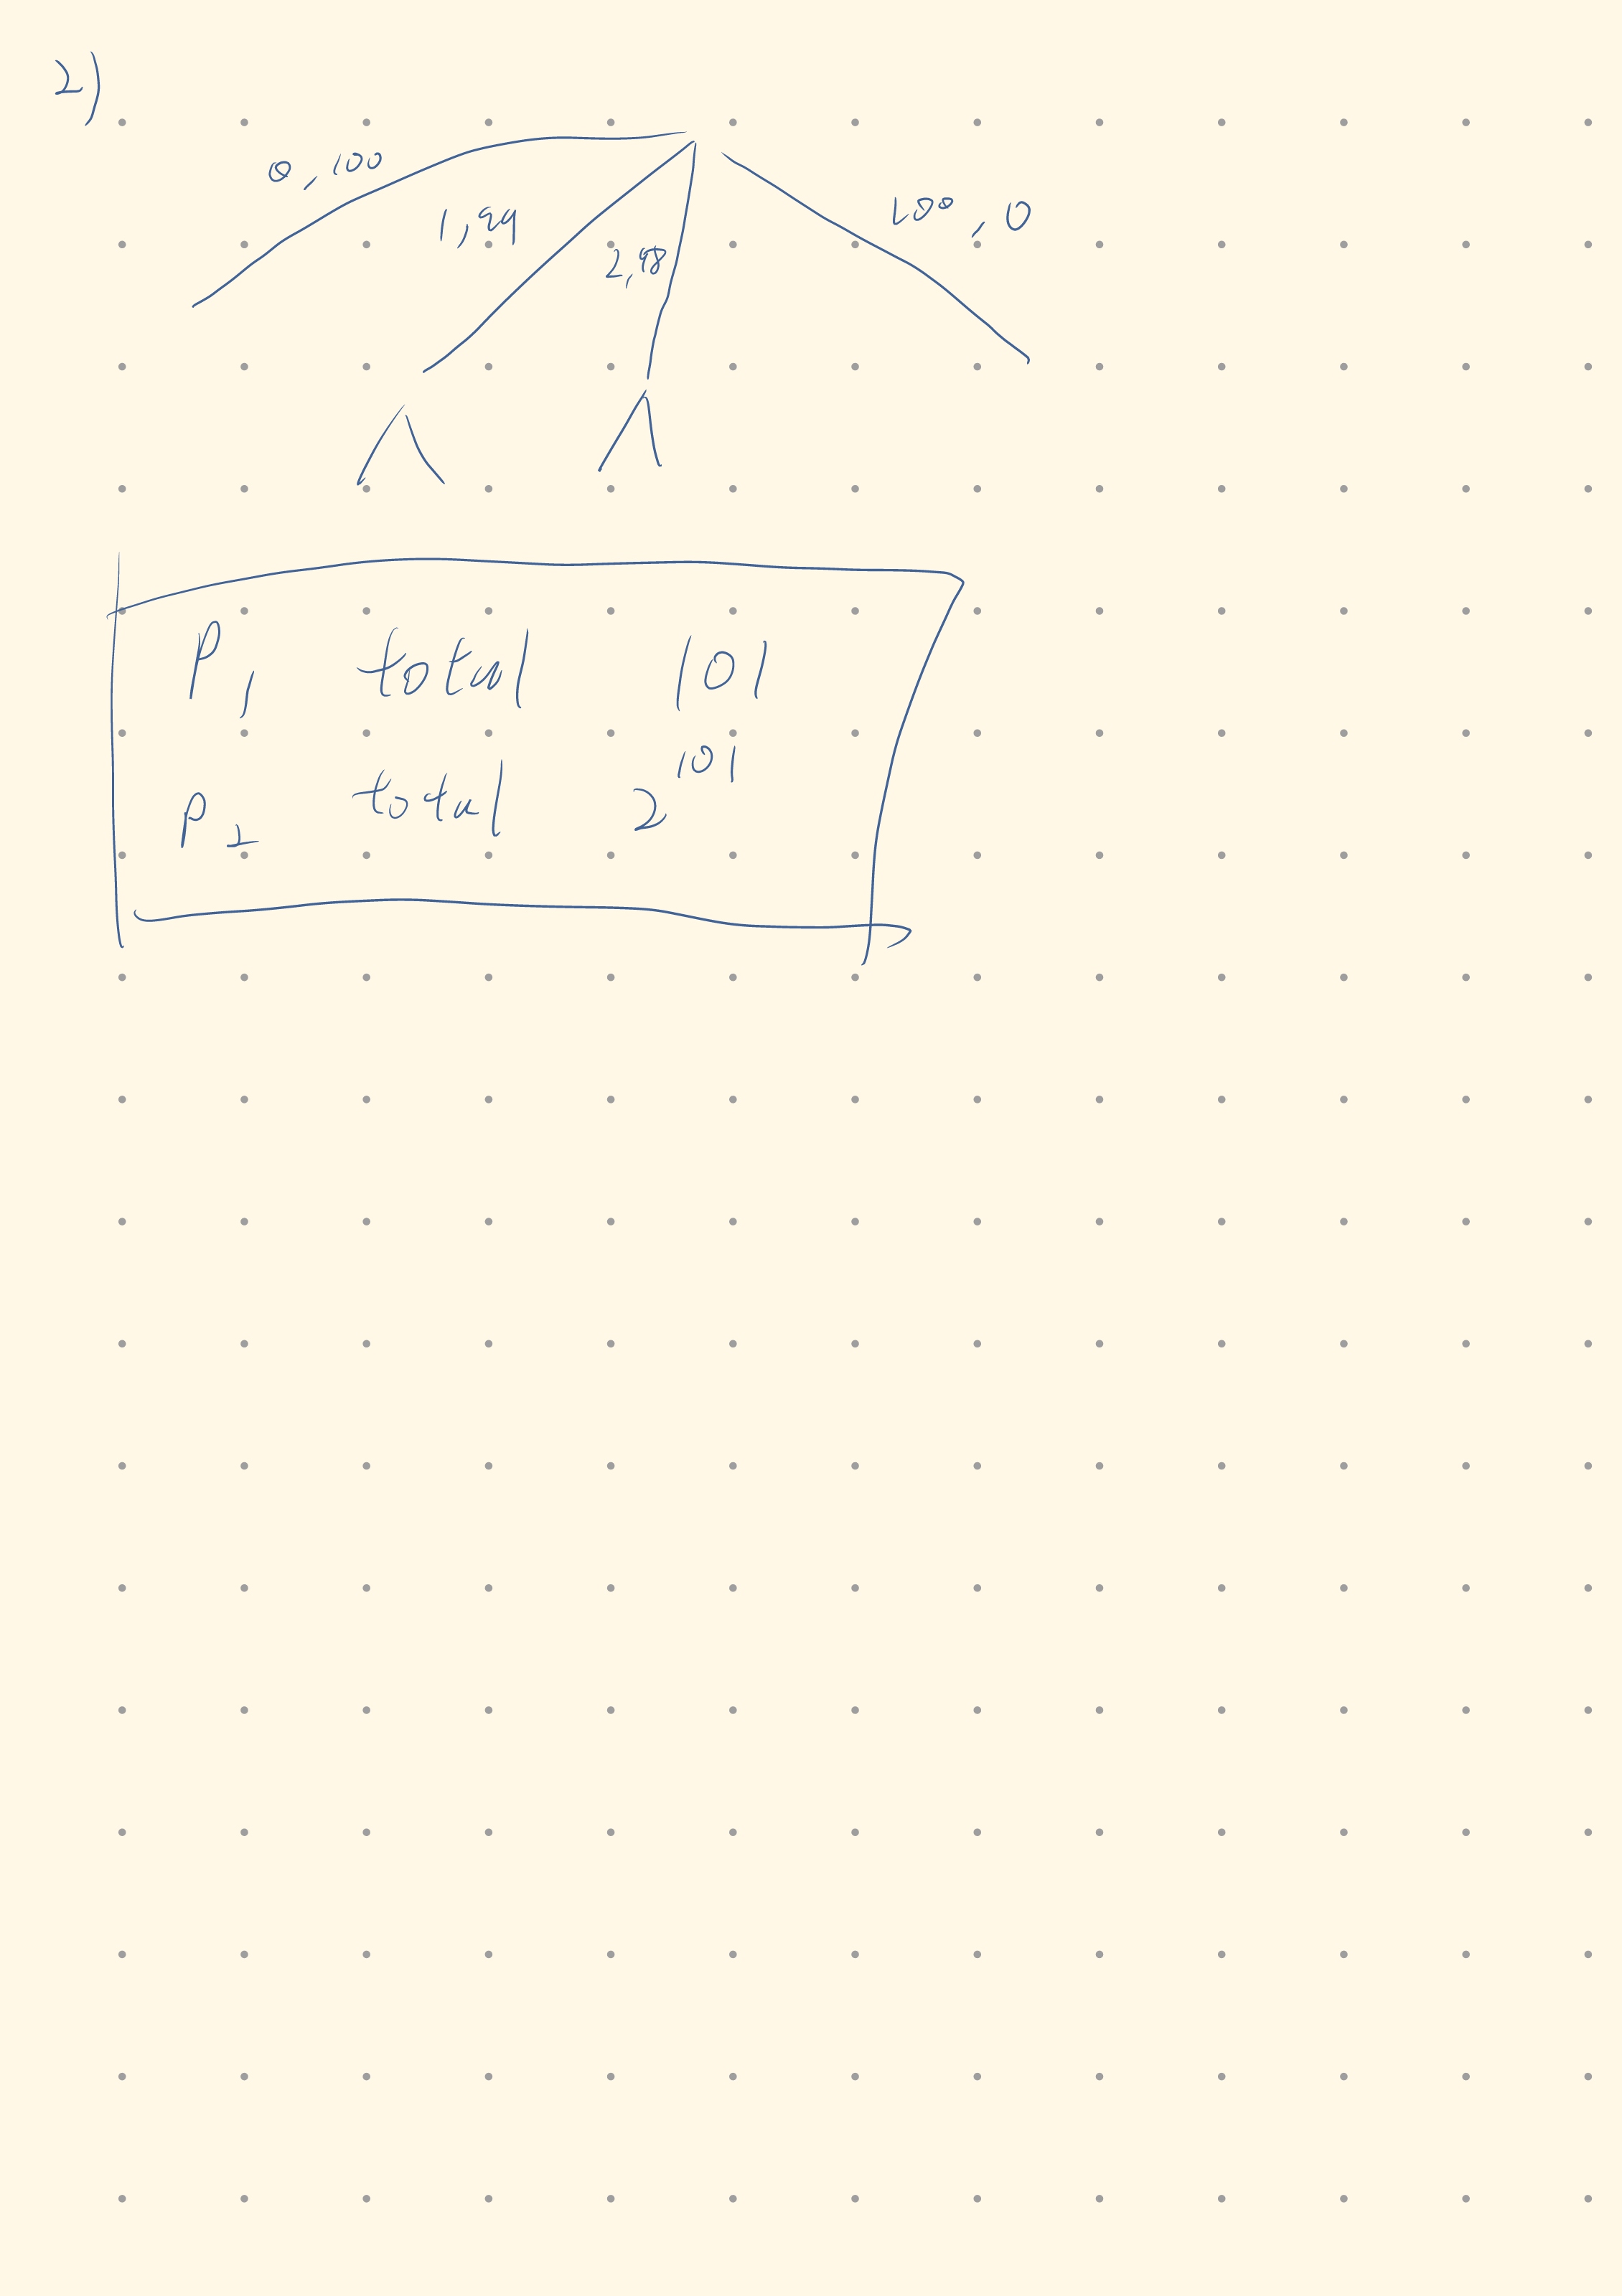 2)
0,100
1,99
2,98
100,0
P1 total 101
P2 total 2^101